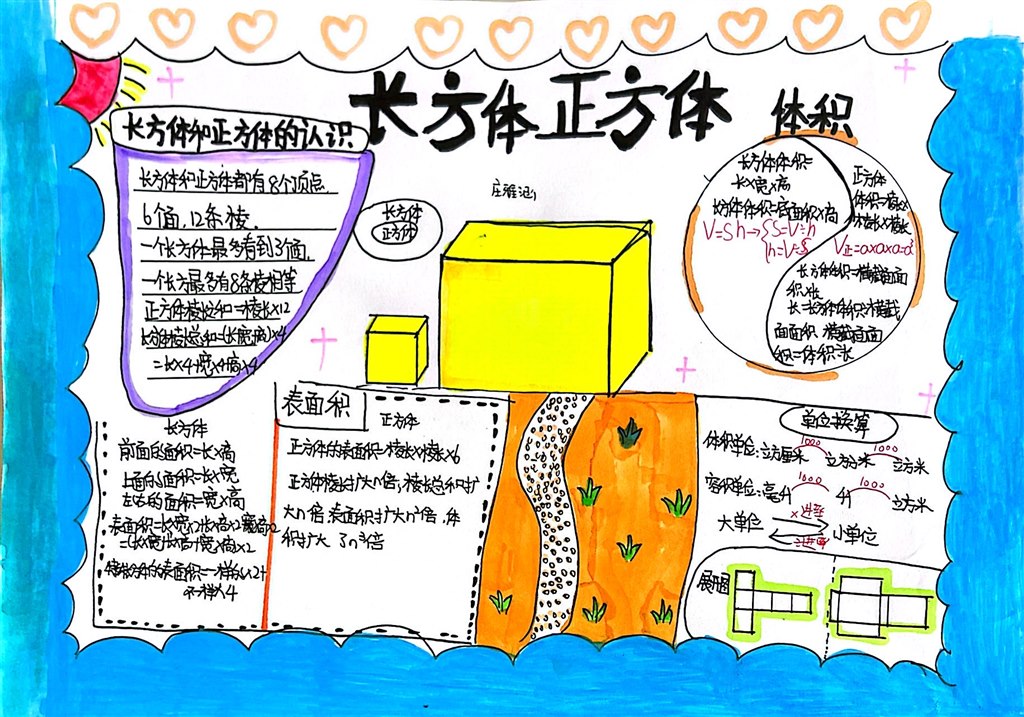 长方体 正方体
体积
长方体和正方体的认识
长方体和正方体都有8个顶点.
6个面,12条棱.
一个长方体最多看到3个面.
一个长方最多有8条棱相等
正方体棱长总和=棱长×12
长方体棱长总和=(长宽高)×4
=长×4+宽×4+高×4
长方体
正方体
长方体体积=
长×宽×高
方体体积=底面积×高
V=Sh→{S=V÷h
{h=V÷S
正方体
体积=棱长×
棱长×棱长
V正=a×a×a=a³
长方体体积=横截面面
积×长
长=长方体体积÷横截
面面积 横截面面
积=体积÷长
表面积
长方体
前面的面积=长×高
上面的面积=长×宽
左右的面积=宽×高
正方体
正方体的表面积=棱长×棱长×6
正方体棱长扩大n倍,棱长总和扩
大n倍.表面积扩大n²倍.体
积扩大 n³倍
单位换算
体积单位:立方厘米 1000 立方分米 1000 立方米
容积单位:毫升 1000 升 1000 立方米
大单位 ×进率 小单位
÷进率
展开图